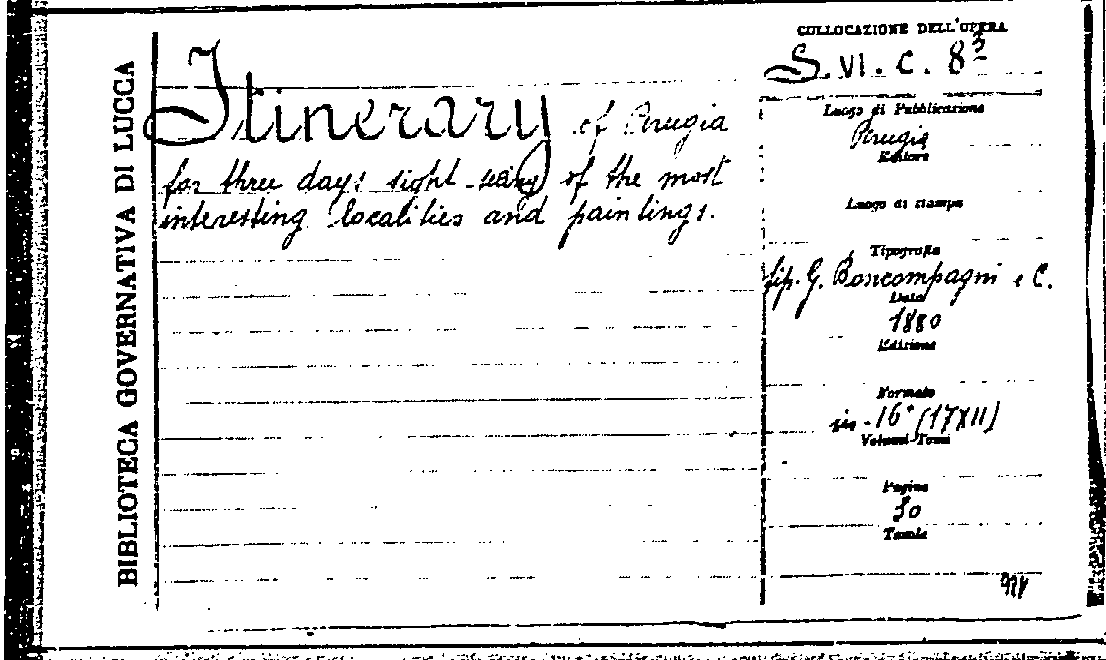 BIBLIOTECA GOVERNATIVA DI LUCCA
Itinerary of Perugia
for three days sight-seing of the most
interesting localities and paintings.
COLLOCAZIONE DELL'OPERA
S. VI. C. 8³
Luogo di Pubblicazione
Perugia
Editore
Luogo di stampa
Tipografia
tip. G. Boncompagni e C.
Data
1880
Edizione
Formato
in-16° (17X11)
Volumi Tomi
Pagine
30
Tavole